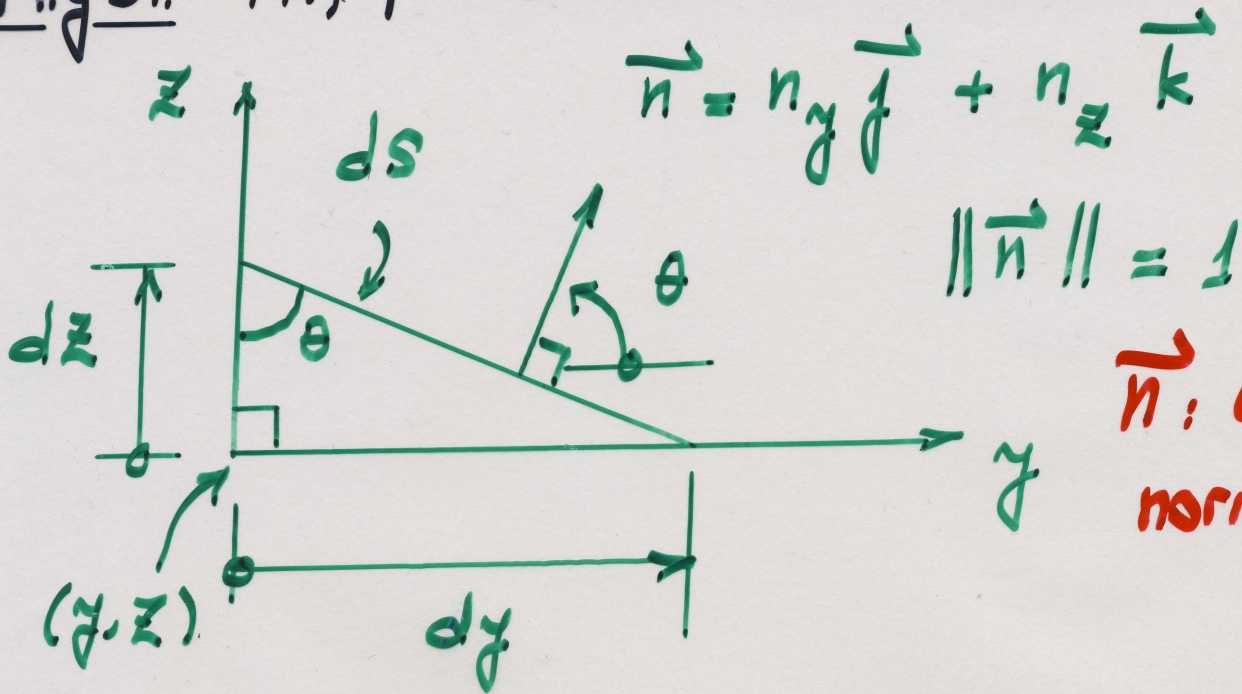 z
ds
\vec{n} = n_y \vec{j} + n_z \vec{k}
‖\vec{n}‖ = 1
θ
dz
θ
\vec{n} :
y
(y, z)
dy